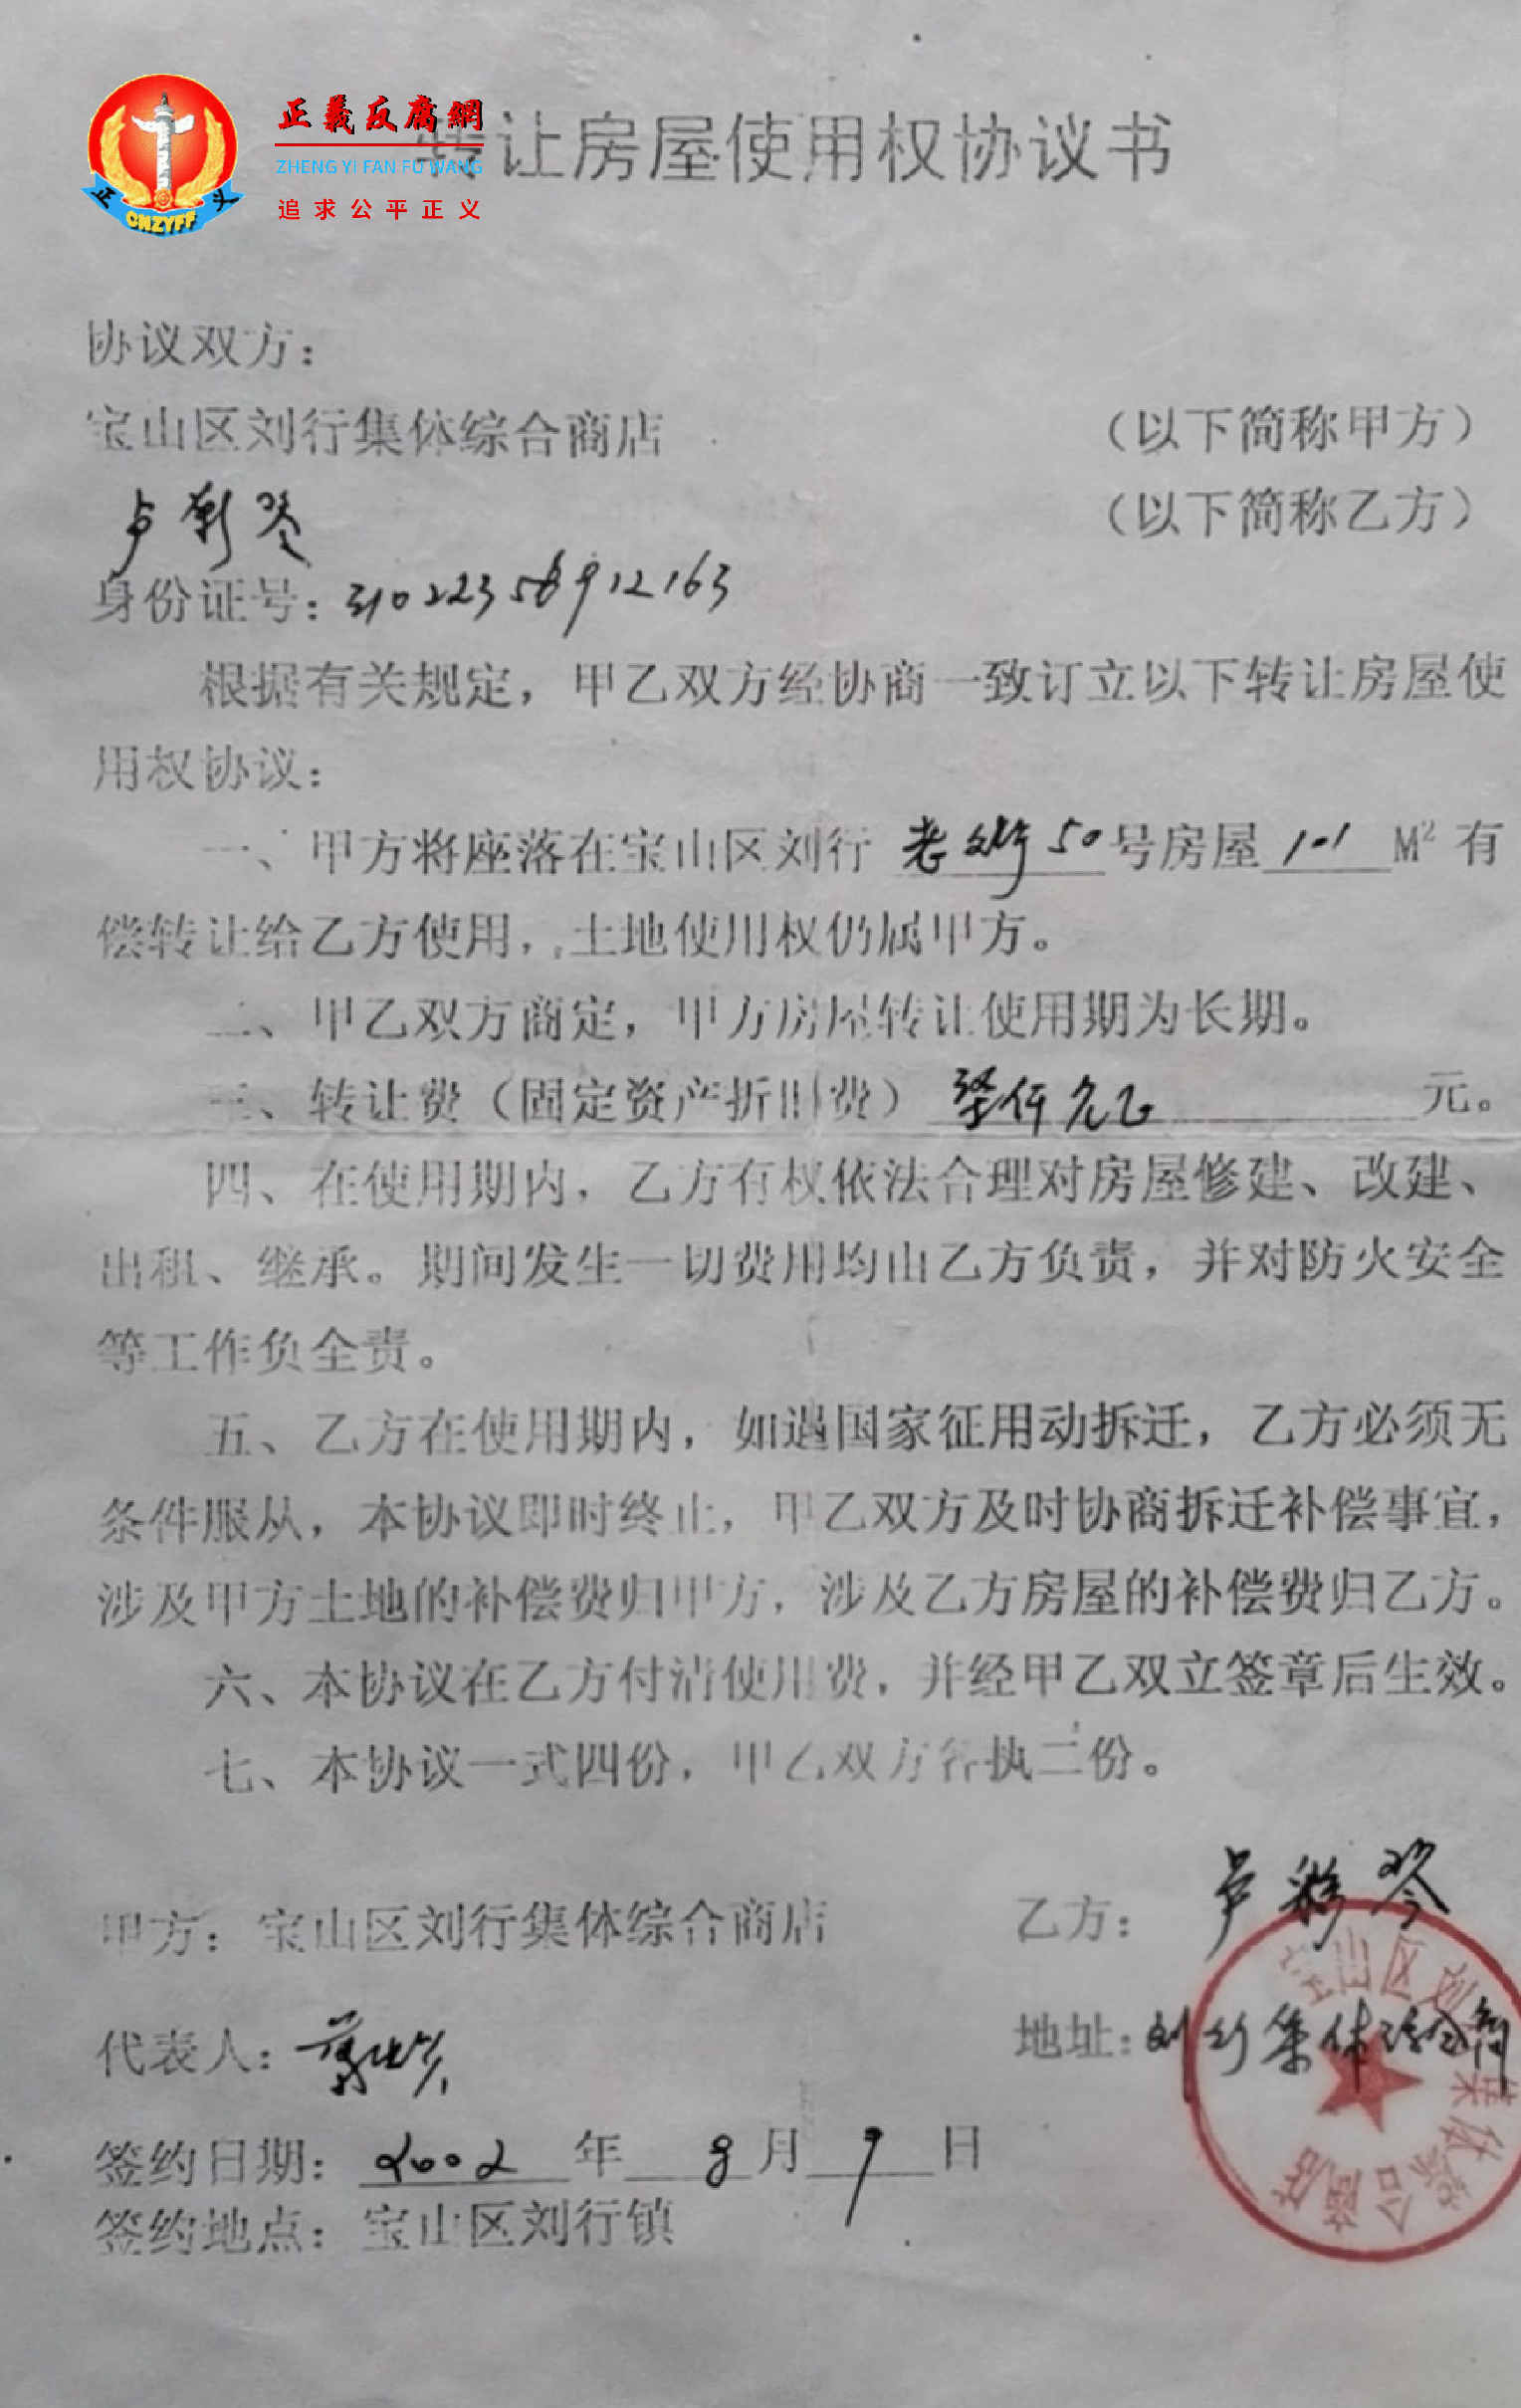 正義反腐網
ZHENG YI FAN FU WANG
追求公平正义
正 义
CNZYFF
转让房屋使用权协议书
协议双方：
宝山区刘行集体综合商店 （以下简称甲方）
卢彩琴 （以下简称乙方）
身份证号：
根据有关规定，甲乙双方经协商一致订立以下转让房屋使
用权协议：
一、甲方将座落在宝山区刘行 老街50号房屋 101 M² 有
偿转让给乙方使用，土地使用权仍属甲方。
二、甲乙双方商定，甲方房屋转让使用期为长期。
三、转让费（固定资产折旧费） 元。
四、在使用期内，乙方有权依法合理对房屋修建、改建、
出租、继承。期间发生一切费用均由乙方负责，并对防火安全
等工作负全责。
五、乙方在使用期内，如遇国家征用动拆迁，乙方必须无
条件服从，本协议即时终止，甲乙双方及时协商拆迁补偿事宜，
涉及甲方土地的补偿费归甲方，涉及乙方房屋的补偿费归乙方。
六、本协议在乙方付清使用费，并经甲乙双立签章后生效。
七、本协议一式四份，甲乙双方各执二份。
甲方：宝山区刘行集体综合商店 乙方：卢彩琴
代表人： 地址：刘行集体综合商
签约日期：2002 年 8 月 9 日
签约地点：宝山区刘行镇
宝山区刘 集体综合商店